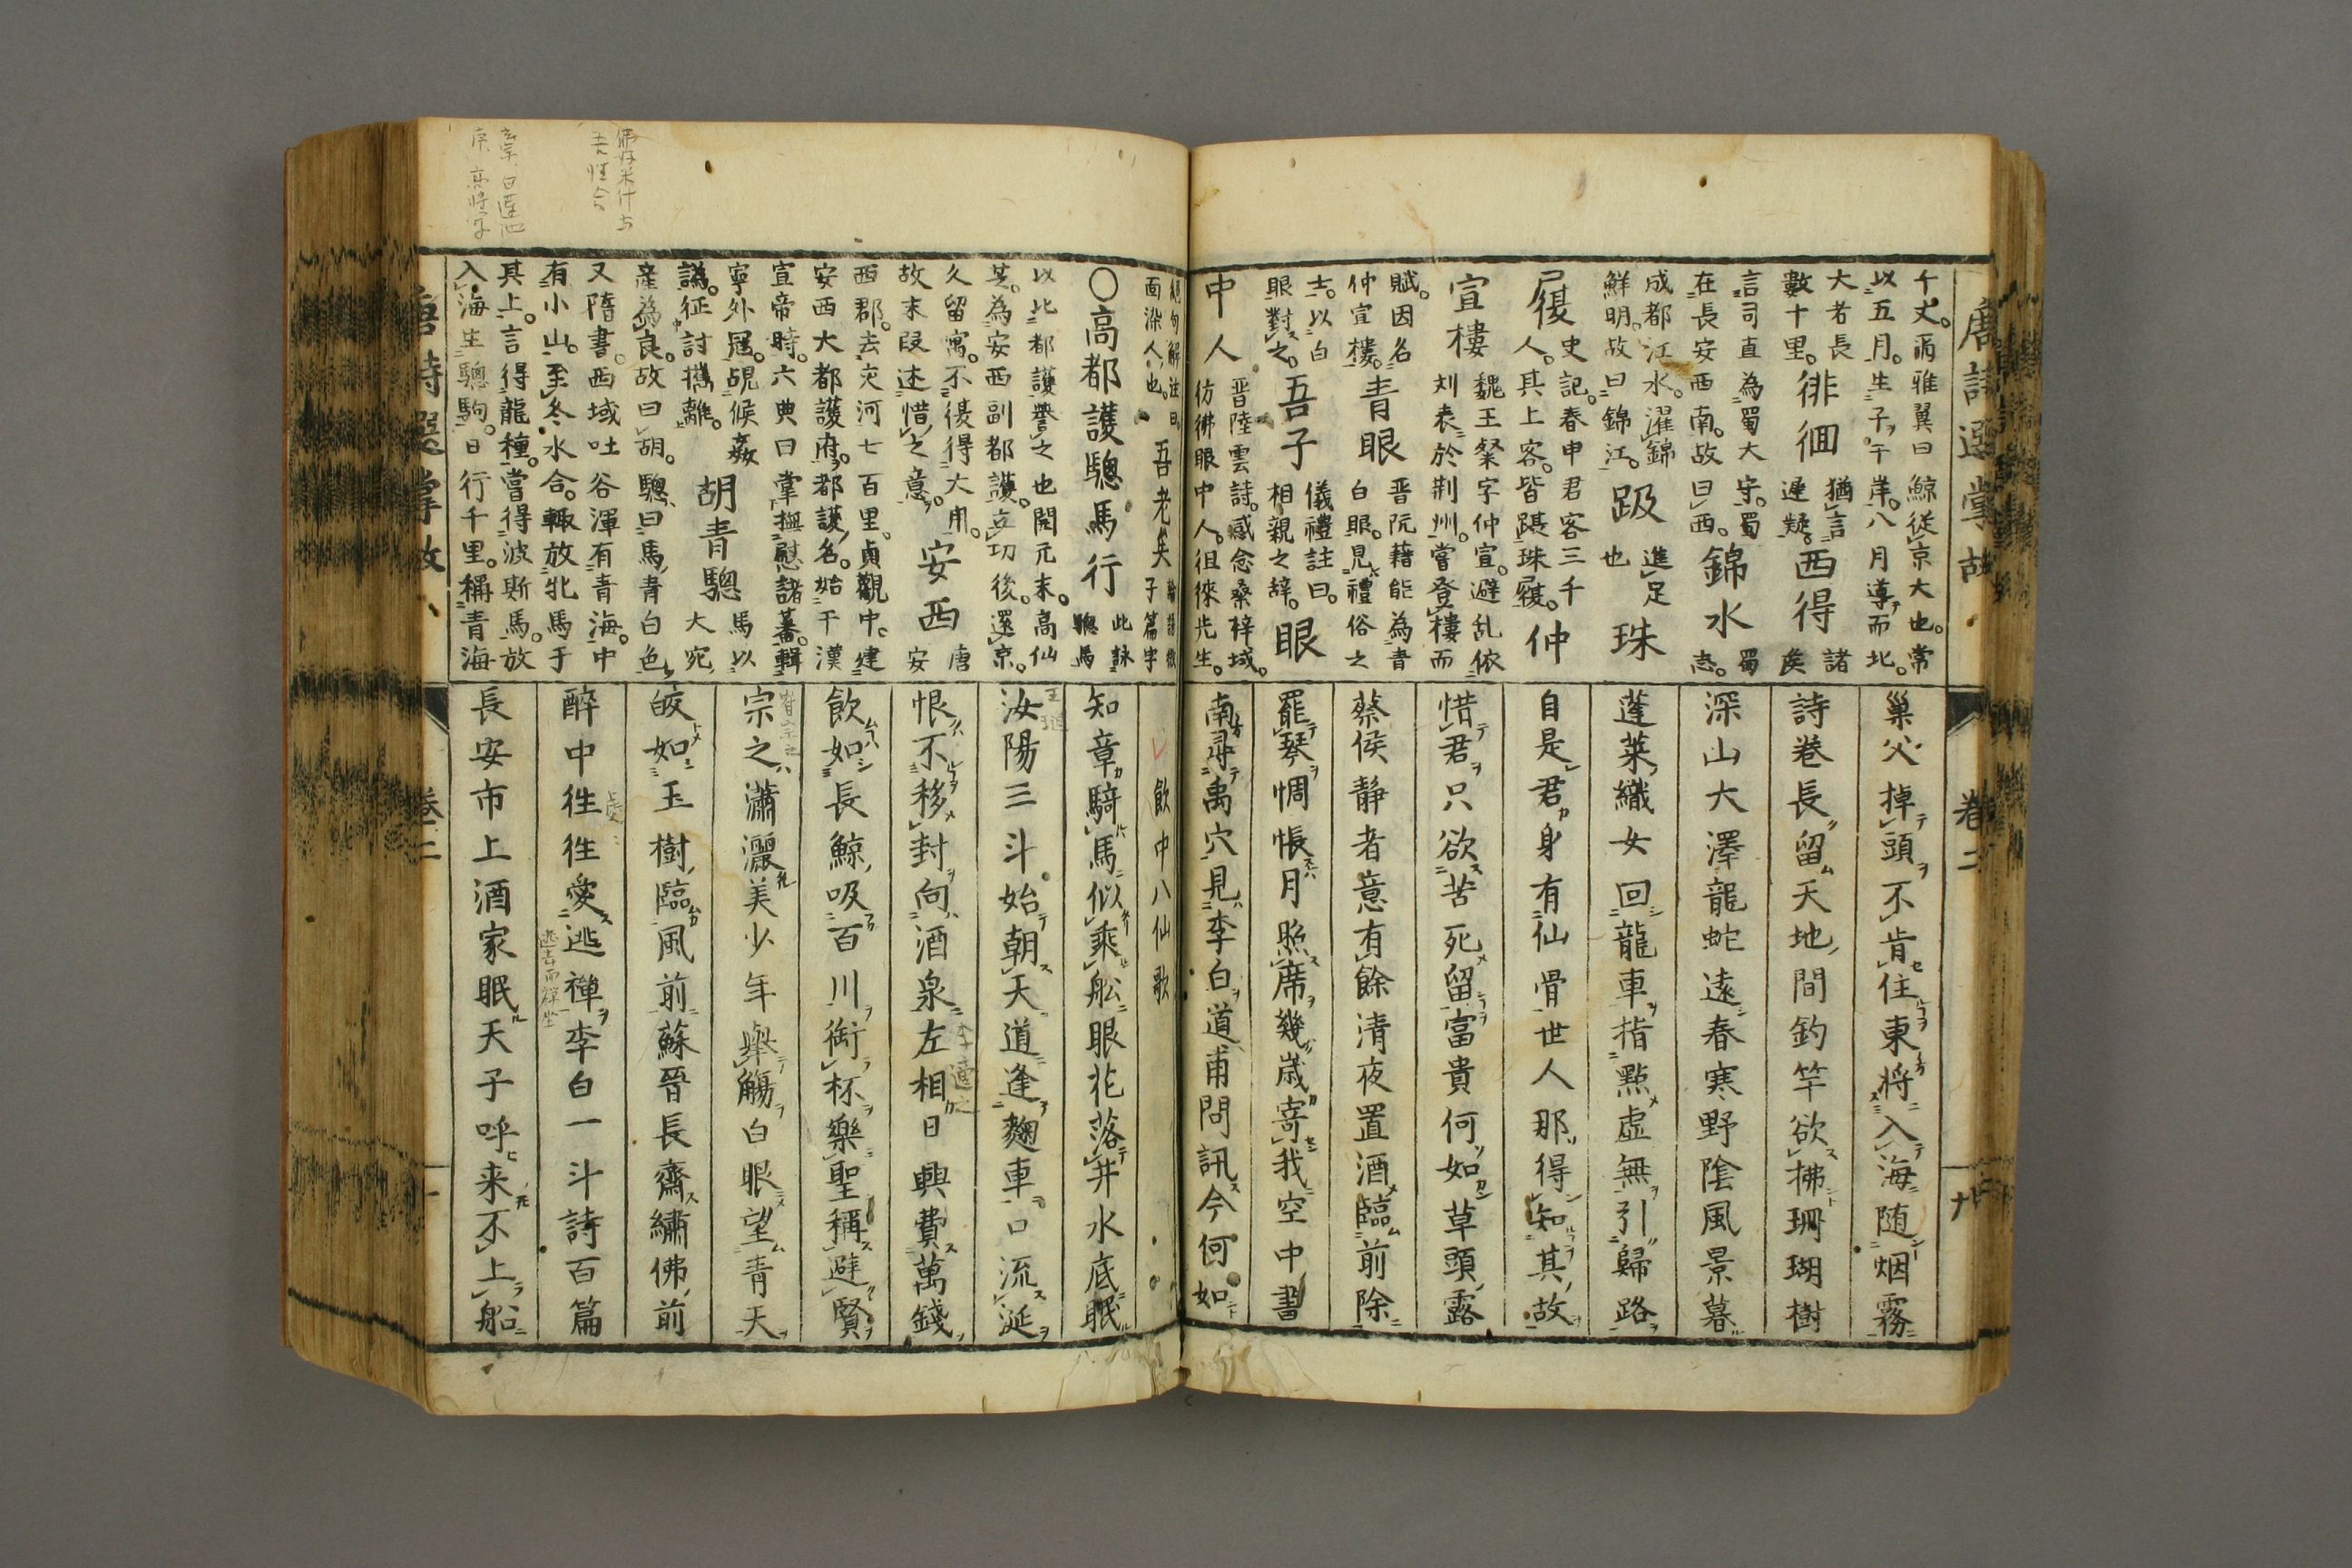 唐詩選掌故
卷二
千丈。爾雅翼曰鯨從京大也。常
以五月。生子于岸。八月導而北。
大者長
數十里。
徘徊
猶言
遲疑。
西得
諸
矦
言司直為蜀大守。蜀
在長安西南。故曰西。
錦水
蜀
志。
成都江水。濯錦
鮮明。故曰錦江。
趿
進足
也
珠
履
史記。春申君客三千
人。其上客。皆躡珠履。
仲
宣樓
魏王粲字仲宣。避乱依
刘表於荆州。嘗登樓而
賦。因名
仲宣樓。
青眼
晋阮藉能為青
白眼。見禮俗之
士。以白
眼對之。
吾子
儀禮註曰。
相親之辞。
眼
中人
晋陸雲詩。感念桑梓域。
彷彿眼中人。徂徠先生。
絕句解注曰。
面染人也。
吾老矣
子篇字
〇高都護驄馬行
此詠
驄馬
以比都護譽之也開元末。高仙
芝。為安西副都護。立功後。還京。
久留寓。不復得大用。
故末段述惜之意。
安西
唐
安
西郡。去交河七百里。貞觀中。建
安西大都護府。都護名。始于漢
宣帝時。六典曰掌撫慰諸蕃。輯
寧外冦。覘候姦
譌。征討攜離。
胡青驄
馬以
大宛
産為良。故曰胡。驄曰馬青白色
又隋書。西域吐谷渾有青海。中
有小山。至冬水合。輙放牝馬于
其上。言得龍種。嘗得波斯馬。放
入海生驄駒。日行千里。稱青海
巢父掉頭不肯住東將入海随烟霧
詩巻長留天地間釣竿欲拂珊瑚樹
深山大澤龍蛇遠春寒野陰風景暮
蓬萊織女回龍車指點虛無引歸路
自是君身有仙骨世人那得知其故
惜君只欲苦死留富貴何如草頭露
蔡侯静者意有餘清夜置酒臨前除
罷琴惆悵月照席幾歳寄我空中書
南尋禹穴見李白道甫問訊今何如
飲中八仙歌
知章騎馬似乘舩眼花落井水底眠
汝陽三斗始朝天道逢麴車口流涎
恨不移封向酒泉左相日興費萬錢
飲如長鯨吸百川銜杯樂聖稱避賢
宗之瀟灑美少年擧觴白眼望青天
皎如玉樹臨風前蘇晉長齋繡佛前
醉中徃徃愛逃禅李白一斗詩百篇
長安市上酒家眠天子呼来不上船
唐詩選掌故
卷二